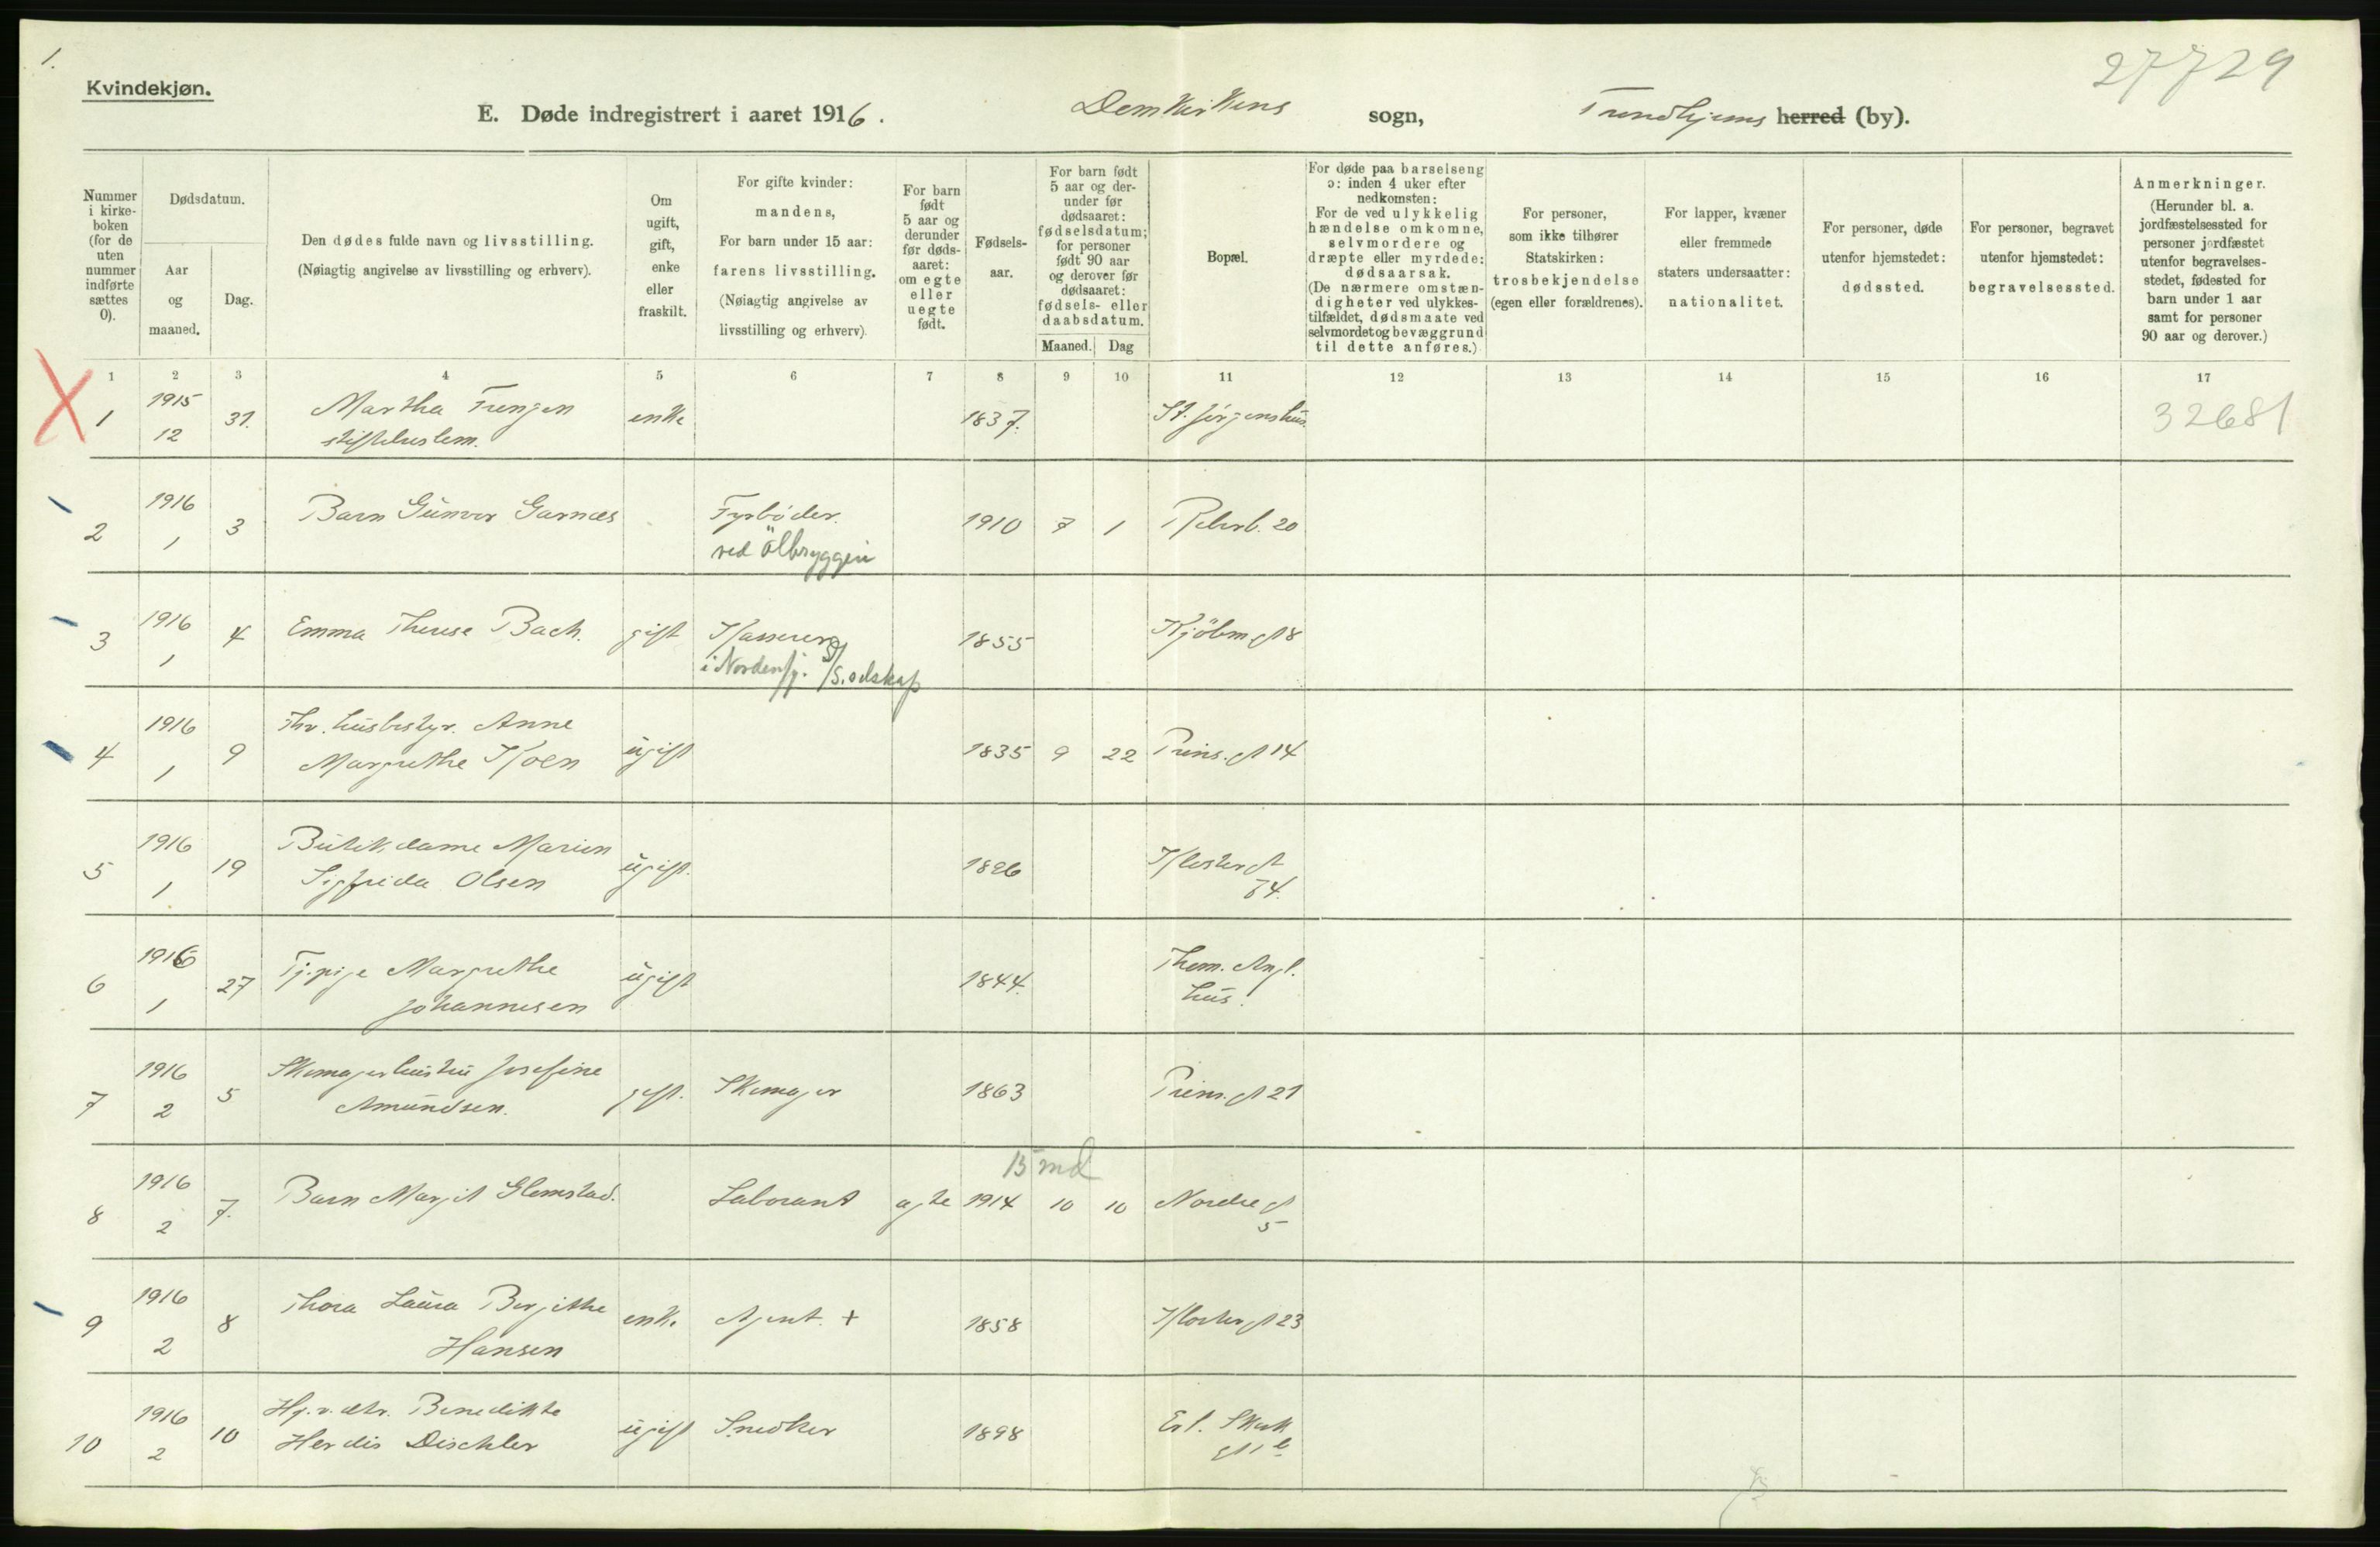 1.
Kvindekjøn.
27729
E. Døde indregistrert i aaret 1916. Domkirkens sogn, Trondhjems herred (by).
Nummer i kirkeboken (for de uten nummer indførte sættes 0).
Dødsdatum.
Aar og maaned.
Dag.
Den dødes fulde navn og livsstilling.
(Nøiagtig angivelse av livsstilling og erhverv).
Om ugift, gift, enke eller fraskilt.
For gifte kvinder: mandens,
For barn under 15 aar: farens livsstilling.
(Nøiagtig angivelse av livsstilling og erhverv).
For barn født 5 aar og derunder før dødsaaret: om egte eller uegte født.
Fødselsaar.
For barn født 5 aar og derunder før dødsaaret: fødselsdatum; for personer født 90 aar og derover før dødsaaret: fødsels- eller daabsdatum.
Maaned. Dag
Bopæl.
For døde paa barselseng ɔ: inden 4 uker efter nedkomsten:
For de ved ulykkelig hændelse omkomne, selvmordere og dræpte eller myrdede: dødsaarsak.
(De nærmere omstændigheter ved ulykkestilfældet, dødsmaate ved selvmordet og bevæggrund til dette anføres.)
For personer, som ikke tilhører Statskirken: trosbekjendelse (egen eller forældrenes).
For lapper, kvæner eller fremmede staters undersaatter: nationalitet.
For personer, døde utenfor hjemstedet: dødssted.
For personer, begravet utenfor hjemstedet: begravelsessted.
Anmerkninger.
(Herunder bl. a. jordfæstelsessted for personer jordfæstet utenfor begravelsesstedet, fødested for barn under 1 aar samt for personer 90 aar og derover.)
1 2 3 4 5 6 7 8 9 10 11 12 13 14 15 16 17
1 1915 12 31. Martha enke 1837. St. Jørgenshus. 32681
2 1916 1 3 Barn Gunvor Garnæs Fyrbøder. 1910 7 1 20
ved Ölbryggeri
3 1916 1 4 Emma Therese Bach. gift Kasserer 1855 Kjöbm. gt 8
i Nordenfj. S/S.selskap
4 1916 1 9 Fhv. husbestyr. Anne ugift 1835 9 22 Prins. gt 14
Margrethe Koen
5 1916 1 19 Butikdame Marien ugift. 1896 Kloster gt
Sigfrida Olsen 64.
6 1916 1 27 Tj.pige Margrethe ugift 1844. Thom. Ang.
Johannesen hus.
7 1916 2 5 Skomagerhustru Josefine gift. Skomager 1863 Prins. gt 21
Amundsen.
15 md
8 1916 2 7. Barn Margit Glemstad. Laborant ægte 1914 10 10 Nordre gt
5
9 1916 2 8 Thora Laura Bergithe enke Agent. + 1858 Kloster gt 23
Hansen
10 1916 2 10 Hj.v. dtr. Benedikte ugift Snedker 1898 Erl. Skak
Herdis Dischler gt 1 b